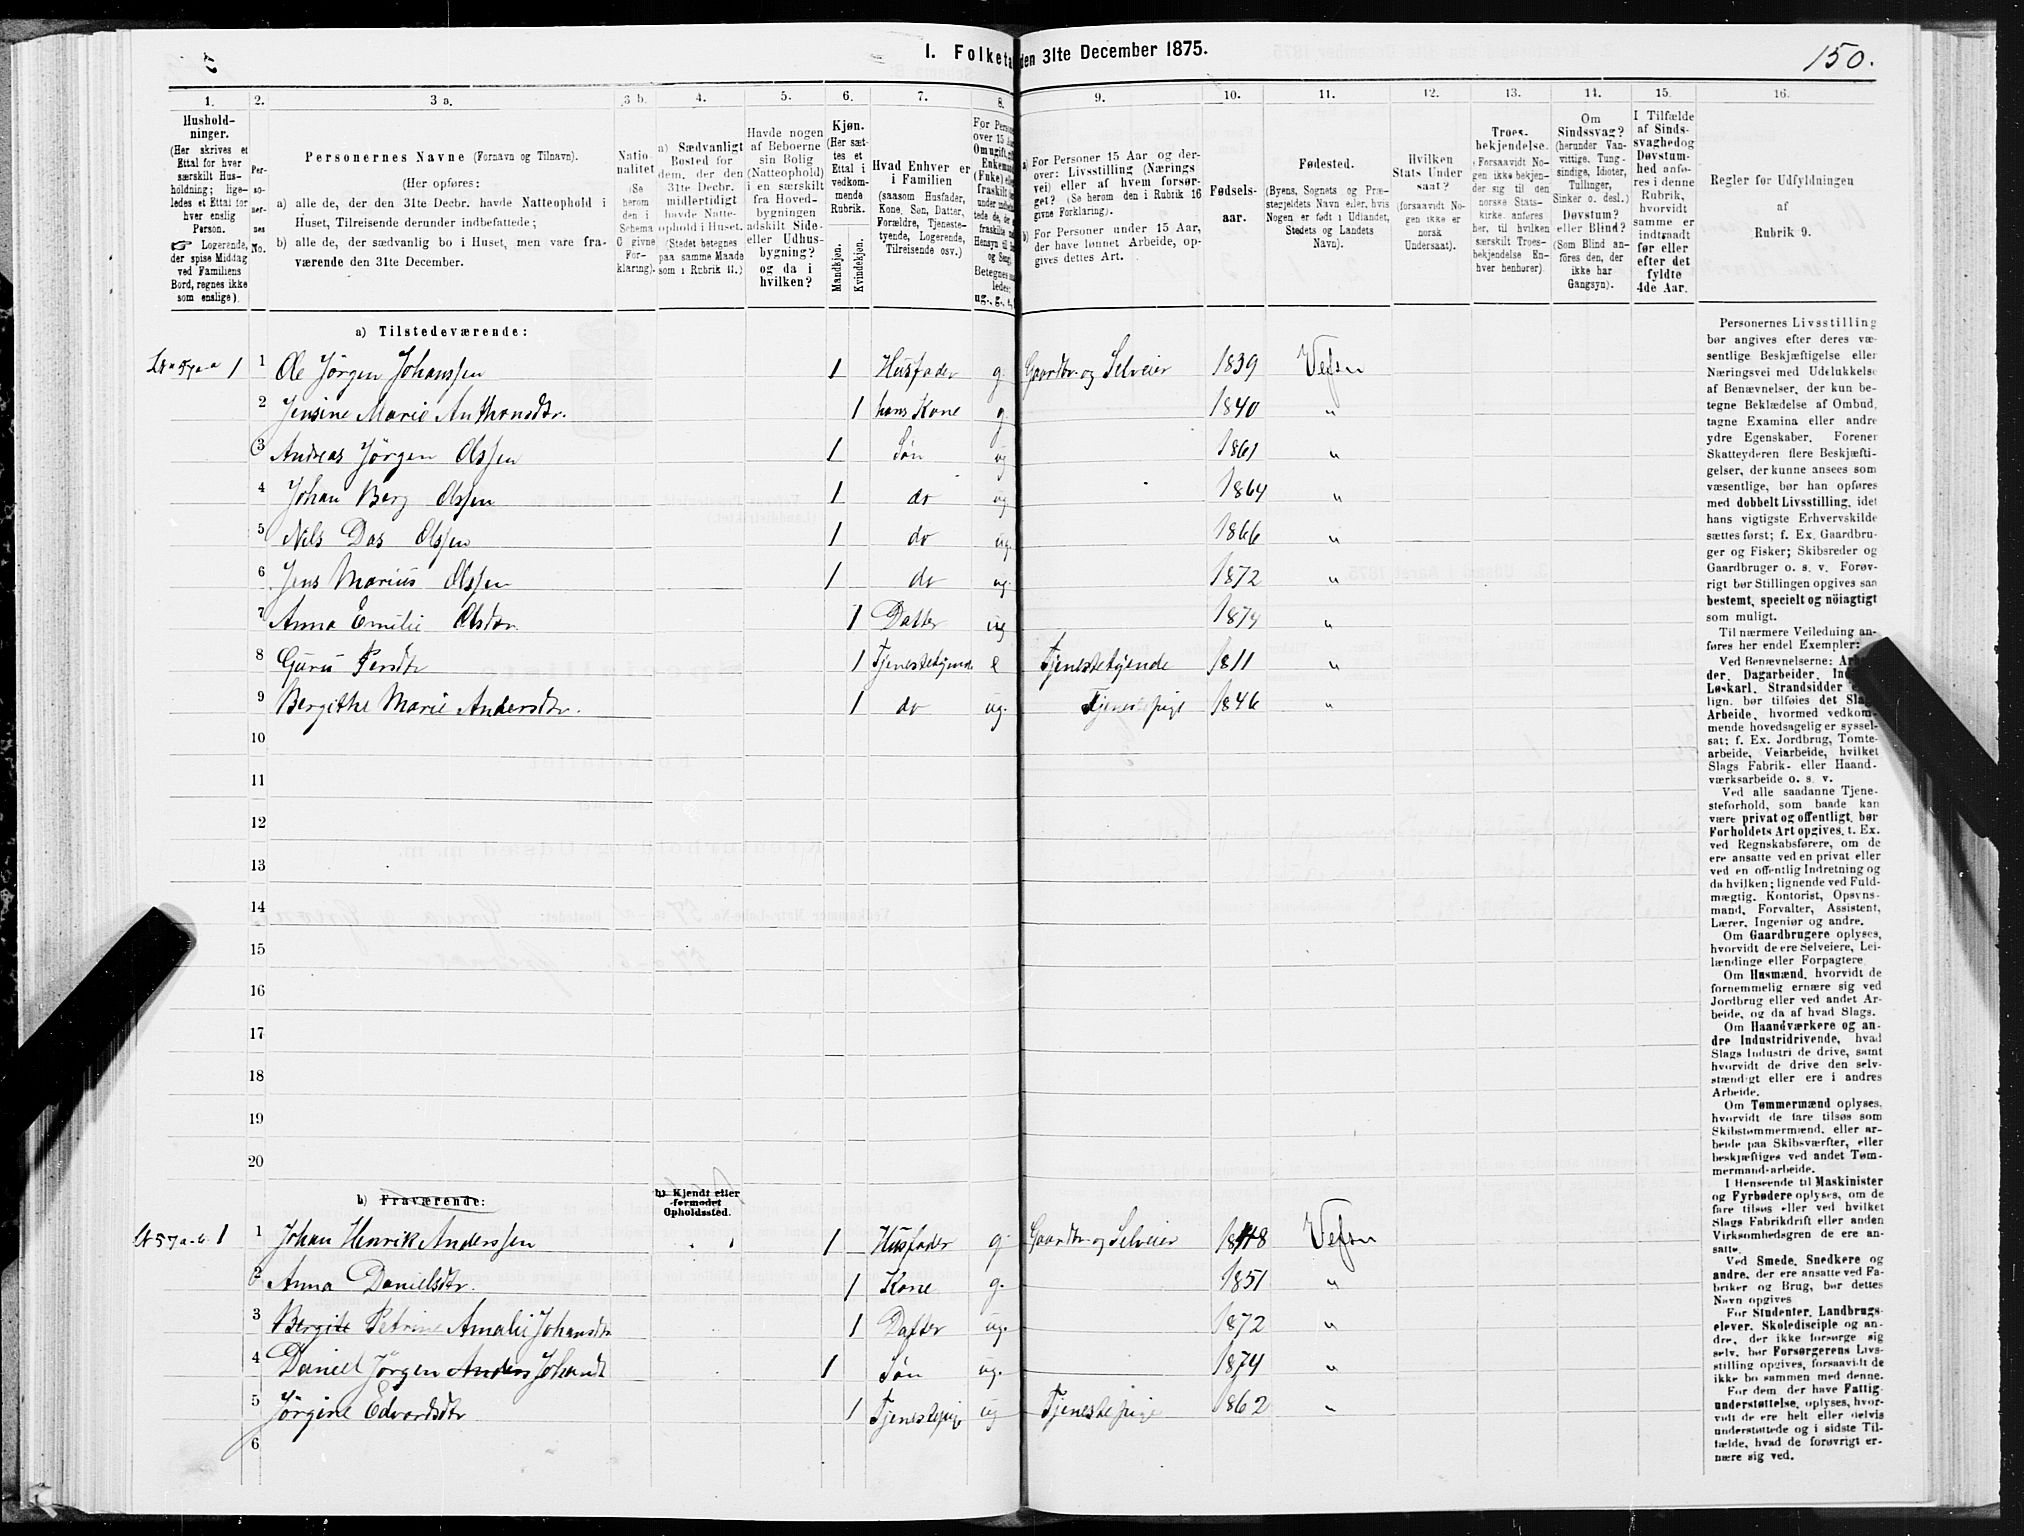 I. Folketa den 31te December 1875.
150.
1. 2. 3 a. 3 b. 4. 5. 6. 7. 8. 9. 10. 11. 12. 13. 14. 15. 16.
Hushold-
ninger.
(Her skrives et
Ettal for hver
særskilt Hus-
holdning; lige-
ledes et Ettal for
hver enslig
Person.
☞ Logerende,
der spise Middag
ved Familiens
Bord, regnes ikke
som enslige).
Per-
so-
ner-
nes
No.
Personernes Navne (Fornavn og Tilnavn).
(Her opføres:
a) alle de, der den 31te Decbr. havde Natteophold i
Huset, Tilreisende derunder indbefattede;
b) alle de, der sædvanlig bo i Huset, men vare fra-
værende den 31te December.
Natio-
nalitet
(Se
herom
den i
Schema
C givne
For-
klaring).
a) Sædvanligt
Bosted for
dem, der den
31te Decbr.
midlertidigt
havde Natte-
ophold i Huset.
(Stedet betegnes
paa samme Maade
som i Rubrik 11.)
Havde nogen
af Beboerne
sin Bolig
(Natteophold)
i en særskilt
fra Hoved-
bygningen
adskilt Side-
eller Udhus-
bygning?
og da i
hvilken?
Kjøn.
(Her sæt-
tes et
Ettal i
vedkom-
mende
Rubrik.
Mandkjøn.
Kvindekjøn.
Hvad Enhver er
i Familien
(saasom Husfader,
Kone, Søn, Datter,
Forældre, Tjeneste-
tyende, Logerende,
Tilreisende osv.)
For Person
over 15 Aar
Om ugift, gi
Enkeman
(Enke) elle
fraskilt
Betegnes saa
ledes:
ug., g., e.,
a) For Personer 15 Aar og der-
over: Livsstilling (Nærings
vei) eller af hvem forsør-
get? (Se herom den i Rubrik 16
givne Forklaring).
b) For Personer under 15 Aar,
der have lønnet Arbeide, op-
gives dettes Art.
Fødsels-
aar.
Fødested.
(Byens, Sognets og Præ-
stegjeldets Navn eller, hvis
Nogen er født i Udlandet,
Stedets og Landets
Navn).
Hvilken
Stats Under
saat?
(forsaavidt No-
gen ikke er
norsk
Undersaat).
Troes-
bekjendelse.
(Forsaavidt No-
gen ikke bekjen-
der sig til den
norske Stats-
kirke, anføres
her, til hvilken
særskilt Troes-
bekjendelse En-
hver henhører).
Om
Sindssvag?
(herunder Van-
vittige, Tung-
sindige, Idioter,
Tullinger,
Sinker o. desl.)
Døvstum?
eller Blind?
(Som Blind an-
føres den, der
ikke har
Gangsyn).
I Tilfælde
af Sinds-
svaghed og
Døvstum-
hed anfø-
res i denne
Rubrik,
hvorvidt
samme er
indtraadt
før eller
efter det
fyldte
4de Aar.
Regler for Udfyldningen
af
Rubrik 9.
a) Tilstedeværende:
1 1 Ole Jørgen Johanssen 1 Husfader g. Gaardbr. og Selveier 1839 Vefsn
2 Jensine Marie Anthonsdtr. 1 hans Kone g. 1840 "
3 Andreas Jørgen Olssen 1 Søn ug 1861 "
4 Johan Berg Olssen 1 do ug. 1864 "
5 Nils Das Olssen 1 do ug. 1866 "
6 Jens Marius Olssen 1 do ug. 1872 "
7 Anna Emilie Olsdtr. 1 Datter ug 1874 "
8 Guru Persdtr 1 Tjenestetyende e Tjenestetyende 1811 "
9 Bergithe Marie Andersdtr. 1 do ug. Tjenestepige 1846 "
10
11
12
13
14
15
16
17
18
19
20
b) Fraværende:
b) Kjendt eller
formodet
Opholdssted.
57 a-b 1 1 Johan Henrik Anderssen 1 Husfader g. Gaardbr. og Selveier 1848 Vefsn
2 Anna Danielsdtr. 1 Kone g. 1851 "
3 Bergite Petrine Amalie Johansdtr 1 Datter ug. 1872 "
4 Daniel Jørgen Anders Johans 1 Søn ug. 1874 "
5 Jørgine Edvardsdtr 1 Tjenestepige ug Tjenestepige 1862 "
6
Personernes Livsstilling
bør angives efter deres væ-
sentlige Beskjæftigelse eller
Næringsvei med Udelukkelse
af Benævnelser, der kun be-
tegne Beklædelse af Ombud,
tagne Examina eller andre
ydre Egenskaber. Forener
Skatteyderen flere Beskjæfti-
gelser, der kunne ansees som
væsentlige, bør han opføres
med dobbelt Livsstilling, idet
hans vigtigste Erhvervskilde
sættes først; f. Ex. Gaardbru-
ger og Fisker; Skibsreder og
Gaardbruger o. s. v. Forøv-
rigt bør Stillingen opgives saa
bestemt, specielt og nöiagtigt
som muligt.
Til nærmere Veiledning an-
føres her endel Exempler:
Ved Benævnelserne: Ar
der, Dagarbeider, In
Løskarl, Strandsidder
lign. bør tilføies det Slag
Arbeide, hvormed vedkom-
mende hovedsagelig er syssel-
sat; f. Ex. Jordbrug, Tomte-
arbeide, Veiarbeide, hvilket
Slags Fabrik- eller Haand-
værksarbeide o. s. v.
Ved alle saadanne Tjene-
steforhold, som baade kan
være privat og offentligt, bør
Forholdets Art opgives, t. Ex.
ved Regnskabsførere, om de
ere ansatte ved en privat eller
ved en offentlig Indretning og
da hvilken; lignende ved Fuld-
mægtig, Kontorist, Opsyns-
mand, Forvalter, Assistent,
Lærer, Ingeniør og andre.
Om Gaardbrugere oplyses,
hvorvidt de ere Selveiere, Lei-
lændinge eller Forpagtere
Om Husmænd, hvorvidt de
fornemmelig ernære sig ved
Jordbrug eller ved andet Ar-
beide, og da af hvad Slags.
Om Haandværkere og an-
dre Industridrivende, hvad
Slags Industri de drive, samt
hvorvidt de drive den selv-
stændigt eller ere i andres
Arbeide.
Om Tømmermænd oplyses,
hvorvidt de fare tilsøs som
Skibstømmermænd, eller ar-
beide paa Skibsværfter, eller
beskjæftiges ved andet Tøm-
mermandarbeide.
I Henseende til Maskinister
og Fyrbødere oplyses, om de
fare tilsøs eller ved hvilket
Slags Fabrikdrift eller anden
Virksomhedsgren de ere an-
satte.
Ved Smede, Snedkere og
andre, der ere ansatte ved Fa-
briker og Brug, bør dettes
Navn opgives
For Studenter, Landbrugs-
elever, Skoledisciple og an-
dre, der ikke forsørge sig
selv, bør Forsørgerens Livs-
stilling opgives, forsaavidt de
ikke bo sammen med denne.
For dem, der have Fattig-
understøttelse, oplyses, hvor-
vidt de ere helt eller delvis
understøttede og i sidste Til-
fælde, hvad de forøvrigt er-
nære sig ved.